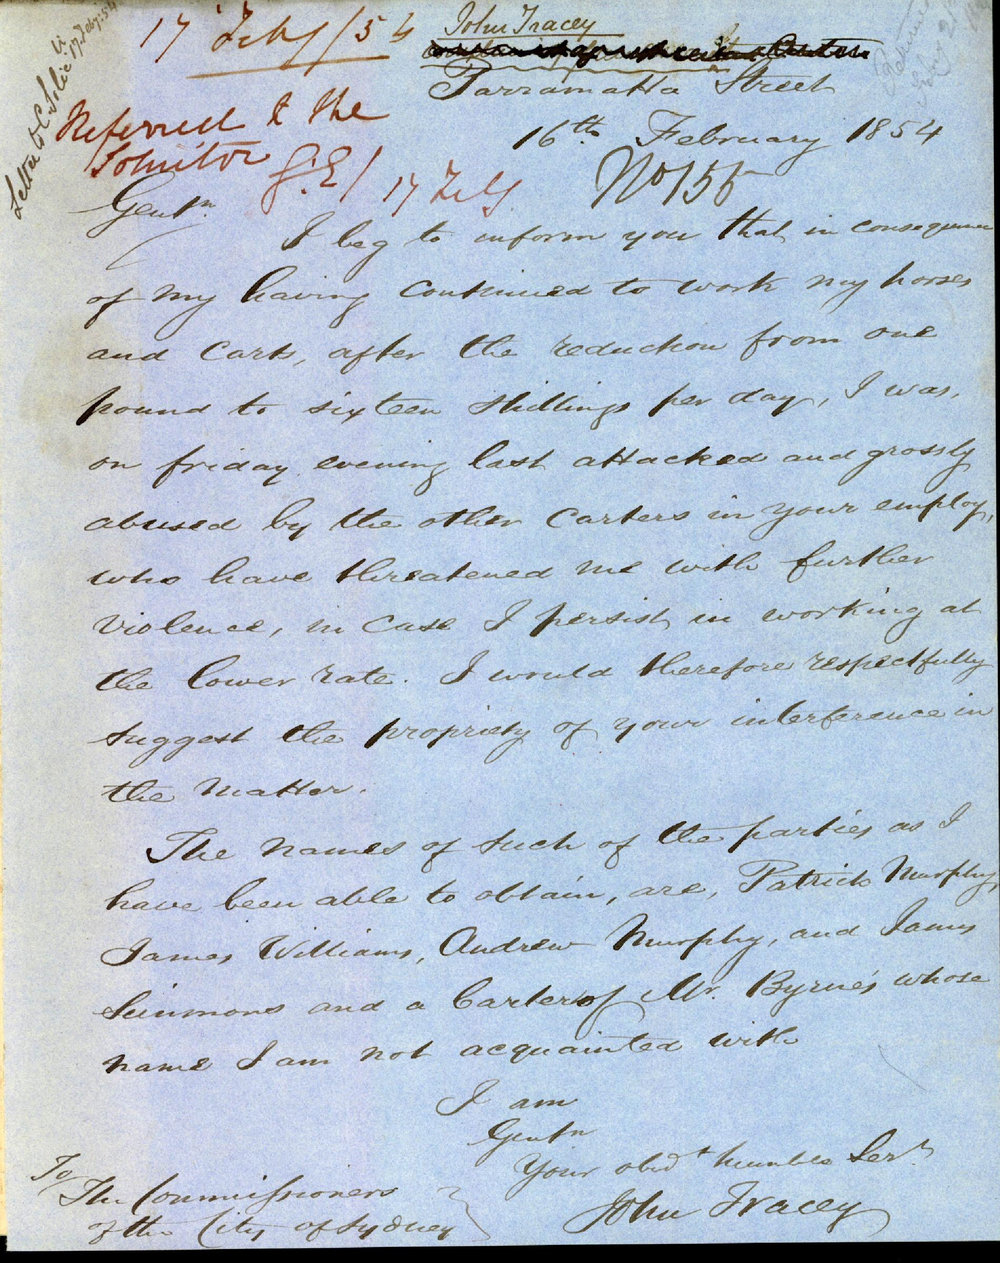 Letter to C. Solic
17 Feby 54
17 Feby /54
John Tracey
Parramatta Street
16th February 1854
Referred to the
Solicitor G.E/ 17 Feby
No 155
Gentn
I beg to inform you that in consequence
of my having continued to work my horses
and carts, after the reduction from one
pound to sixteen shillings per day, I was,
on friday evening last attacked and grossly
abused by the other Carters in your employ,
who have threatened me with further
violence, in case I persist in working at
the lower rate. I would therefore respectfully
suggest the propriety of your interference in
the matter.
The names of such of the parties as I
have been able to obtain, are, Patrick Murphy,
James Williams, Andrew Murphy, and James
Simmons and a Carter of Mr. Byrne's whose
name I am not acquainted with
I am
Gentn
Your obdt humble Servt
John Tracey
To
The Commissioners
of the City of Sydney